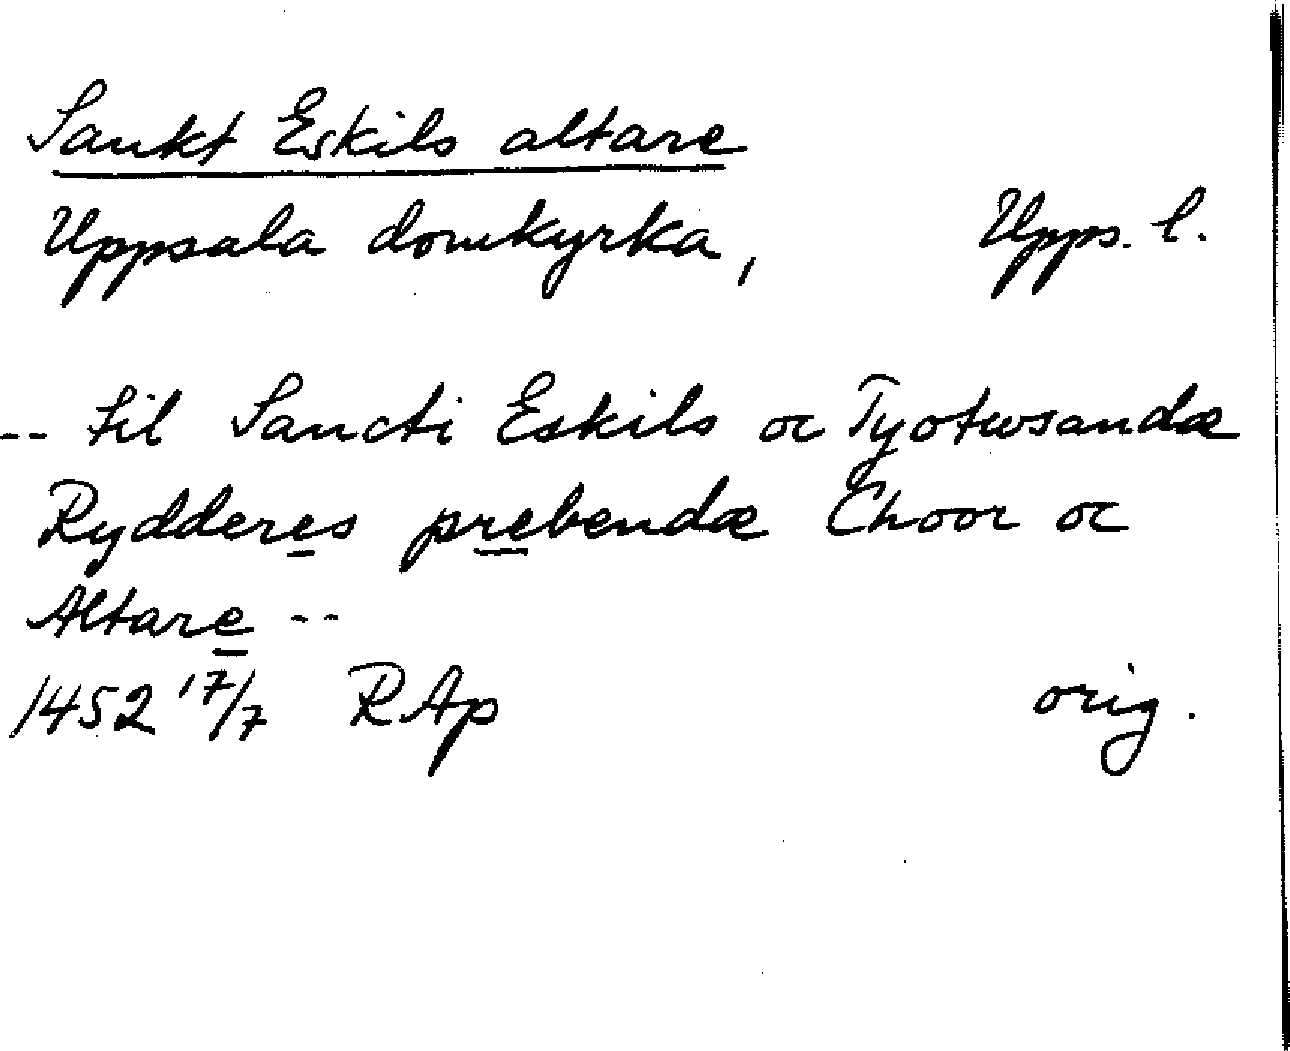 Sankt Eskils altare
Uppsala domkyrka, Upps. l.
-- til Sancti Eskils oc Tyotusandæ
Rydderes prebendæ Choor oc
Altare --
1452 17/7 RAp orig.